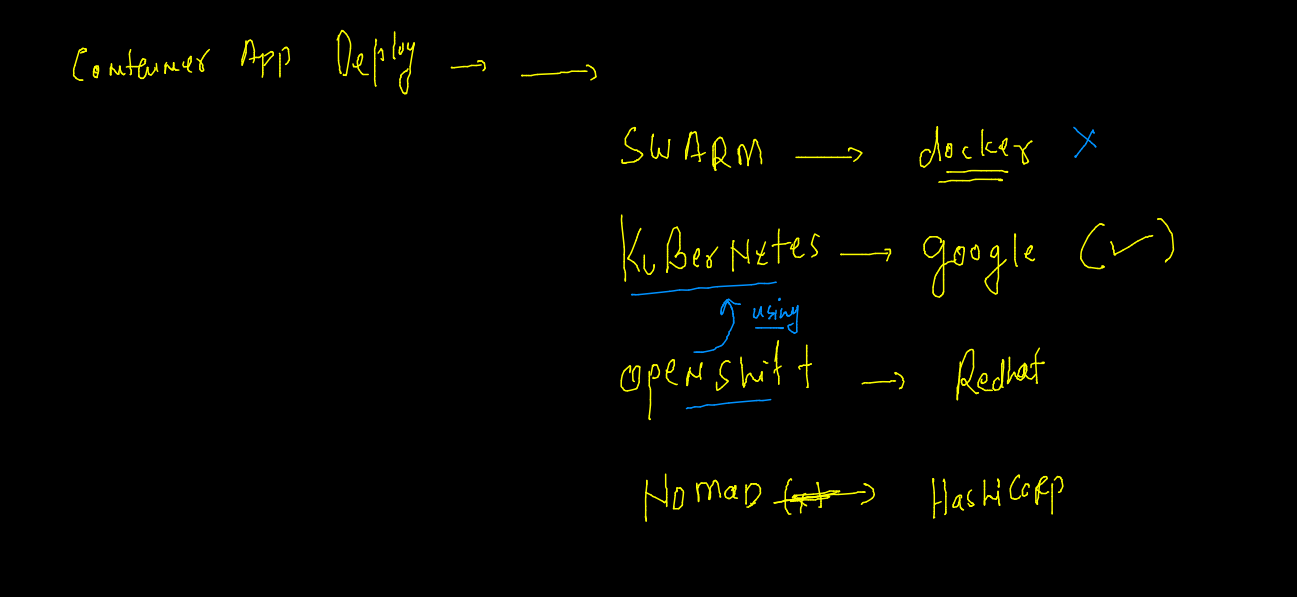 Container App Deploy → →
SWARM → docker X
KuBerNetes → google (✓)
using
openshift → Redhat
NOMAD → HashiCorp